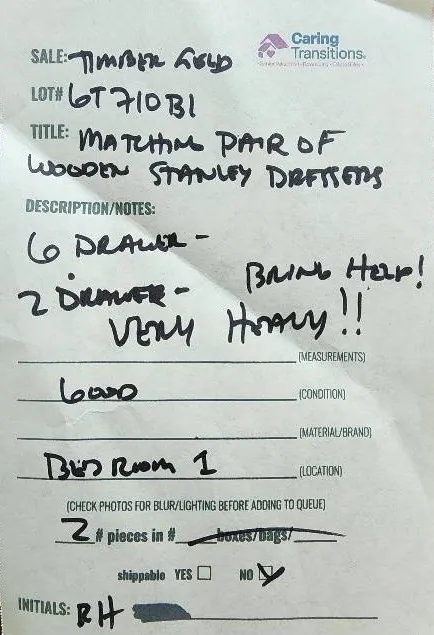 Caring
Transitions®
SALE: TIMBER GOLD
LOT# 6T710B1
TITLE: MATCHING PAIR OF
WOODEN STANLEY DRESSERS
DESCRIPTION/NOTES:
6 DRAWER -
BRING HELP!
2 DRAWER -
VERY HEAVY!!
(MEASUREMENTS)
GOOD (CONDITION)
(MATERIAL/BRAND)
BEDROOM 1 (LOCATION)
(CHECK PHOTOS FOR BLUR/LIGHTING BEFORE ADDING TO QUEUE)
2 # pieces in # boxes/bags/
shippable YES NO
INITIALS: RH